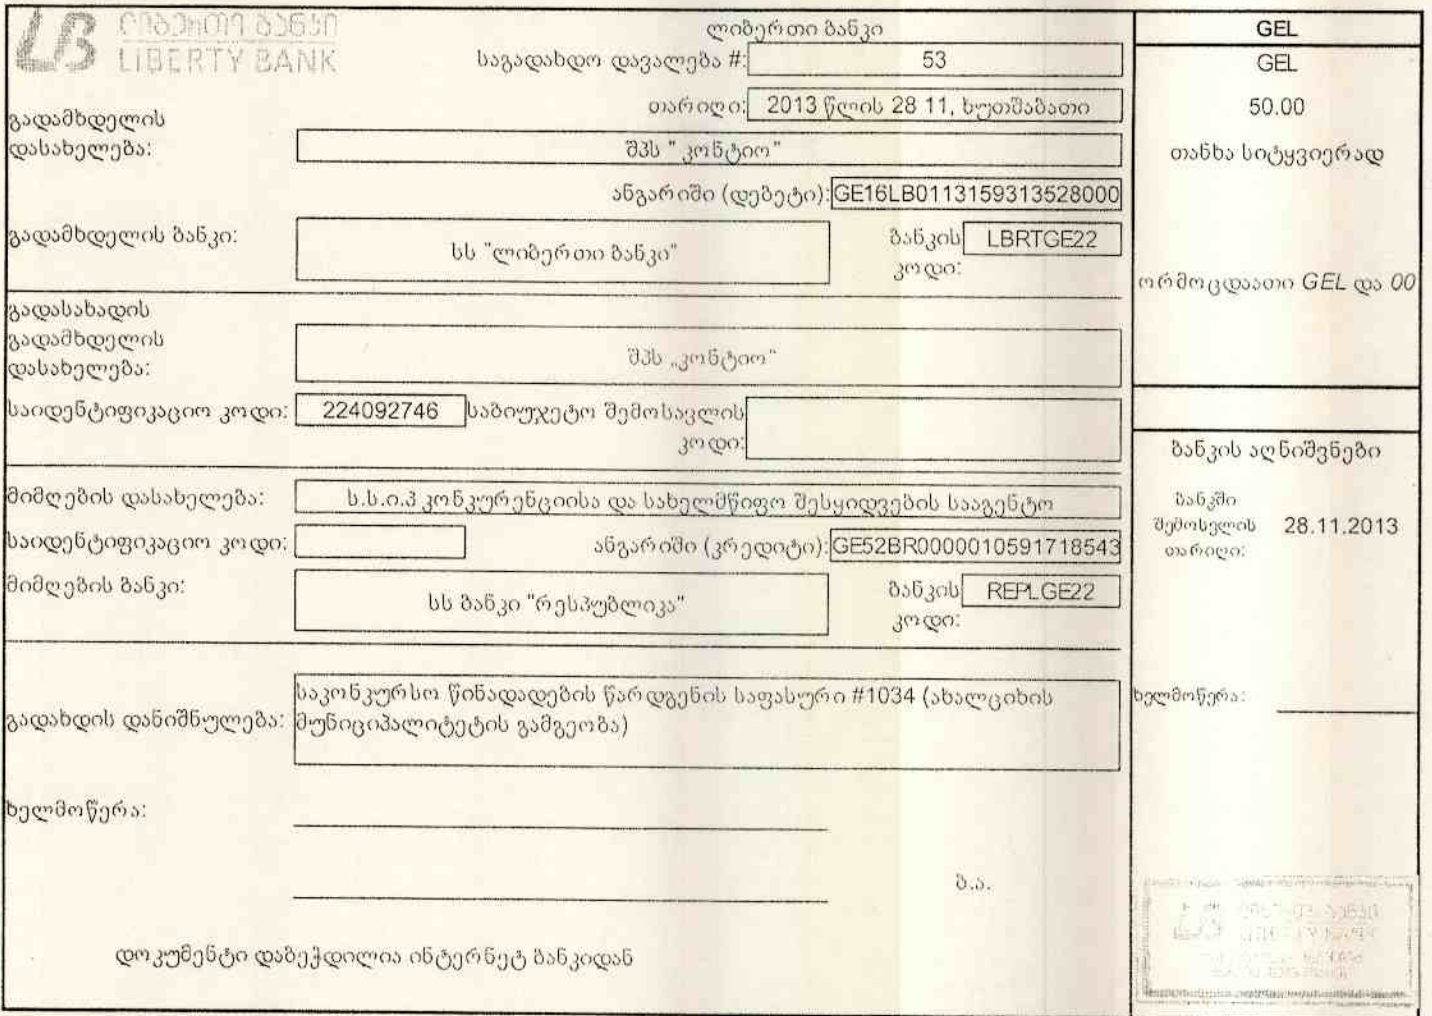 ლიბერთი ბანკი
LIBERTY BANK
ლიბერთი ბანკი
საგადახდო დავალება #: 53
თარიღი: 2013 წლის 28 11, ხუთშაბათი
გადამხდელის
დასახელება: შპს " კონტიო"
ანგარიში (დებეტი): GE16LB0113159313528000
გადამხდელის ბანკი: სს "ლიბერთი ბანკი" ბანკის კოდი: LBRTGE22
გადასახადის
გადამხდელის
დასახელება: შპს „კონტიო"
საიდენტიფიკაციო კოდი: 224092746 საბიუჯეტო შემოსავლის
კოდი:
მიმღების დასახელება: ს.ს.ი.პ კონკურენციისა და სახელმწიფო შესყიდვების სააგენტო
საიდენტიფიკაციო კოდი: ანგარიში (კრედიტი): GE52BR0000010591718543
მიმღების ბანკი: სს ბანკი "რესპუბლიკა" ბანკის კოდი: REPLGE22
გადახდის დანიშნულება: საკონკურსო წინადადების წარდგენის საფასური #1034 (ახალციხის
მუნიციპალიტეტის გამგეობა)
ხელმოწერა:
ბ.ა.
დოკუმენტი დაბეჭდილია ინტერნეტ ბანკიდან
GEL
GEL
50.00
თანხა სიტყვიერად
ორმოცდაათი GEL და 00
ბანკის აღნიშვნები
ბანკში
შემოსვლის 28.11.2013
თარიღი:
ხელმოწერა: